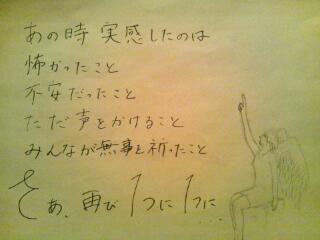 あの時 実感したのは
怖かったこと
不安だったこと
ただ声をかけること
みんなが無事を祈ったこと
さあ、再び 1つに1つに....